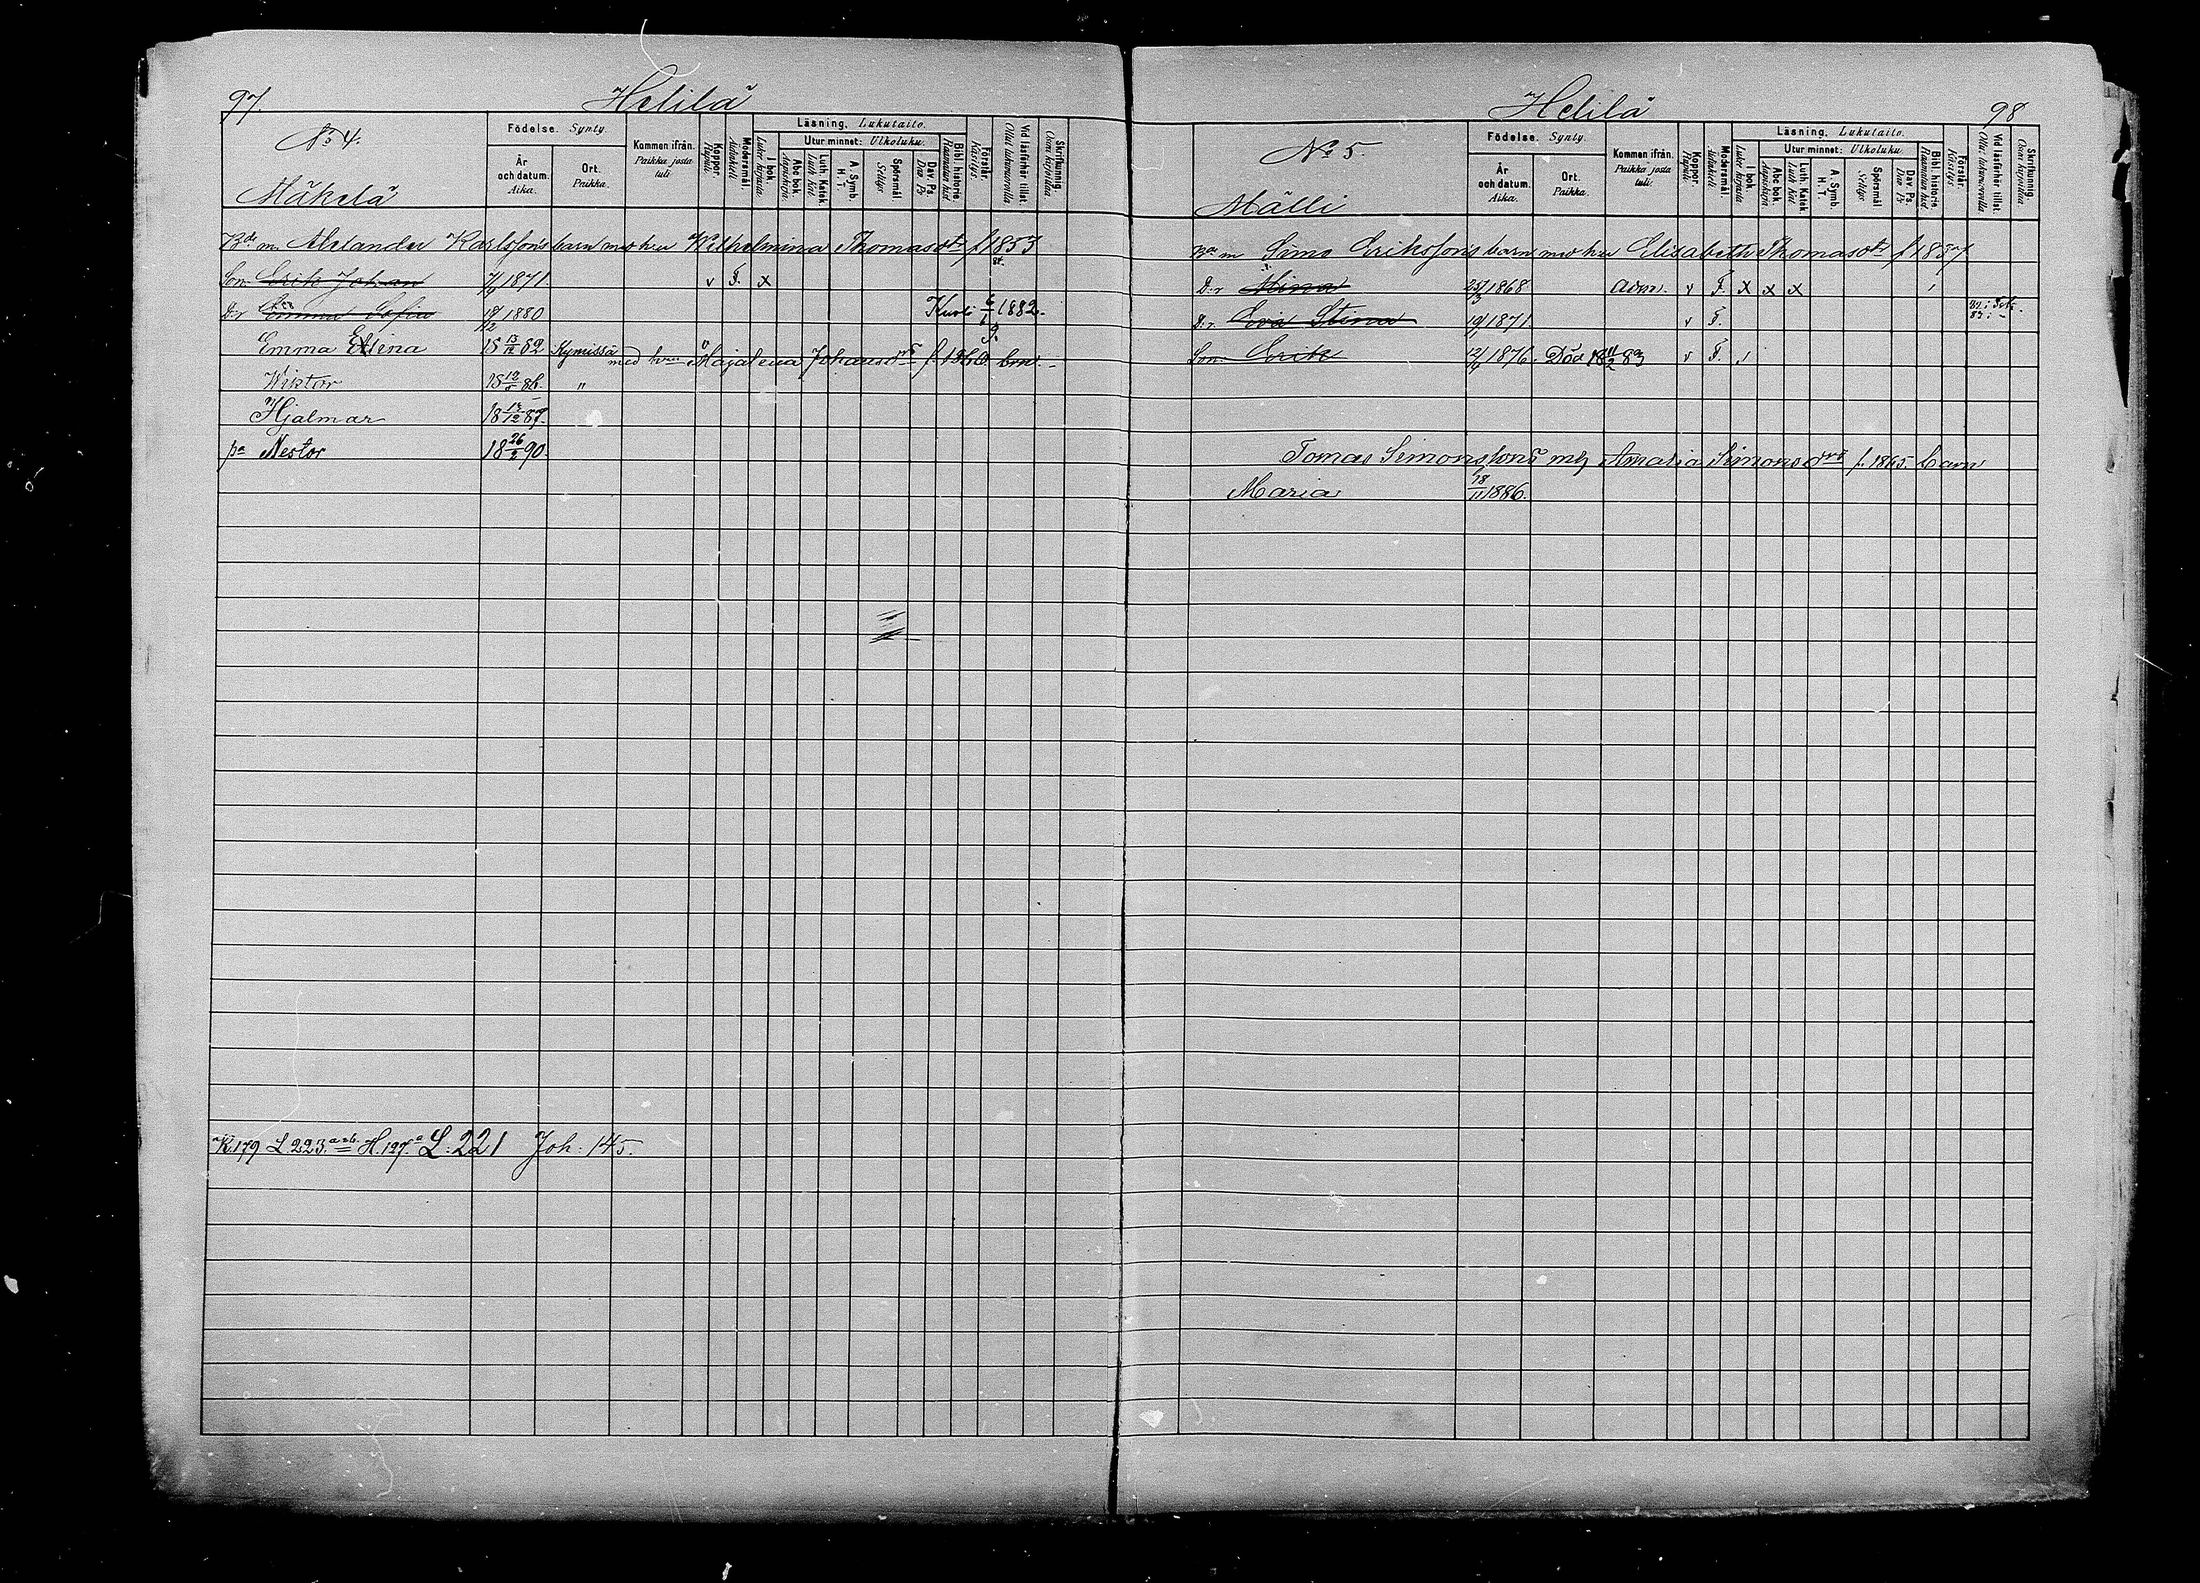 97.
Helilä
No 4.
Mäkelä
Födelse. Synty.
År och datum. Aika.
Ort. Paikka.
Kommen ifrån. Paikka josta tuli
Koppor. Rupuli
Modersmål. Äidinkieli
Läsning. Lukutaito.
I bok. Lukee kirjasta
Utur minnet: Ulkoluku.
Abc bok. Aapiskirja.
Luth. Katek. Luth. Kat.
A. Symb. H. T.
Spörsmål Selitys.
Dav. Ps. Dav. Ps
Bibl. historie. Raamatun hist
Förstår. Käsitys.
Vid läsförhör tillst. Ollut lukuvuorolla
Skrifkunnig. Osaa kirjoittaa.
Bde m Alexander Karlssons barn med hu Wilhelmina Thomasdt f 1853
Son Erik Johan 1871. v F. x
Dr Emma Sofia 1880 Kuoli 6/1 1882.
Emma Elina 18 13/12 82 Kymissä med hun Maja Lena Johansdr f. 1860. brn.
Wiktor 18 12/5 86. "
Hjalmar 18 12/12 87.
pa Nestor 18 26/2 90.
K. 179 L. 223. H. 127. L. 221 Joh: 145.
Helilä
98
No 5.
Mälli
Födelse. Synty.
År och datum. Aika.
Ort. Paikka.
Kommen ifrån. Paikka josta tuli.
Koppor. Rupuli
Modersmål. Äidinkieli
Läsning. Lukutaito.
I bok. Lukee kirjasta
Utur minnet: Ulkoluku.
Abc bok. Aapiskirja
Luth. Katek. Luth. Kat.
A. Symb. H. T.
Spörsmål. Selitys.
Dav. Ps. Dav. Ps
Bibl. historie. Raamatun hist.
Förstår. Käsitys
Vid läsförhör tillst. Ollut lukuvuorolla
Skrifkunnig. Osaa kirjoittaa.
m Simo Erikssons barn med hu Elisabeth Thomasdt f 1837
Dr Mina 25/3 1868. Adm. v F. x x x
Dr. Eva Stina 1871. v F.
Son Erik 1876. Död 18 11/2 83 v F. /
Tomas Simonssons m h Amalia Simonsdr f. 1865. barn
Maria 18/11 1886.